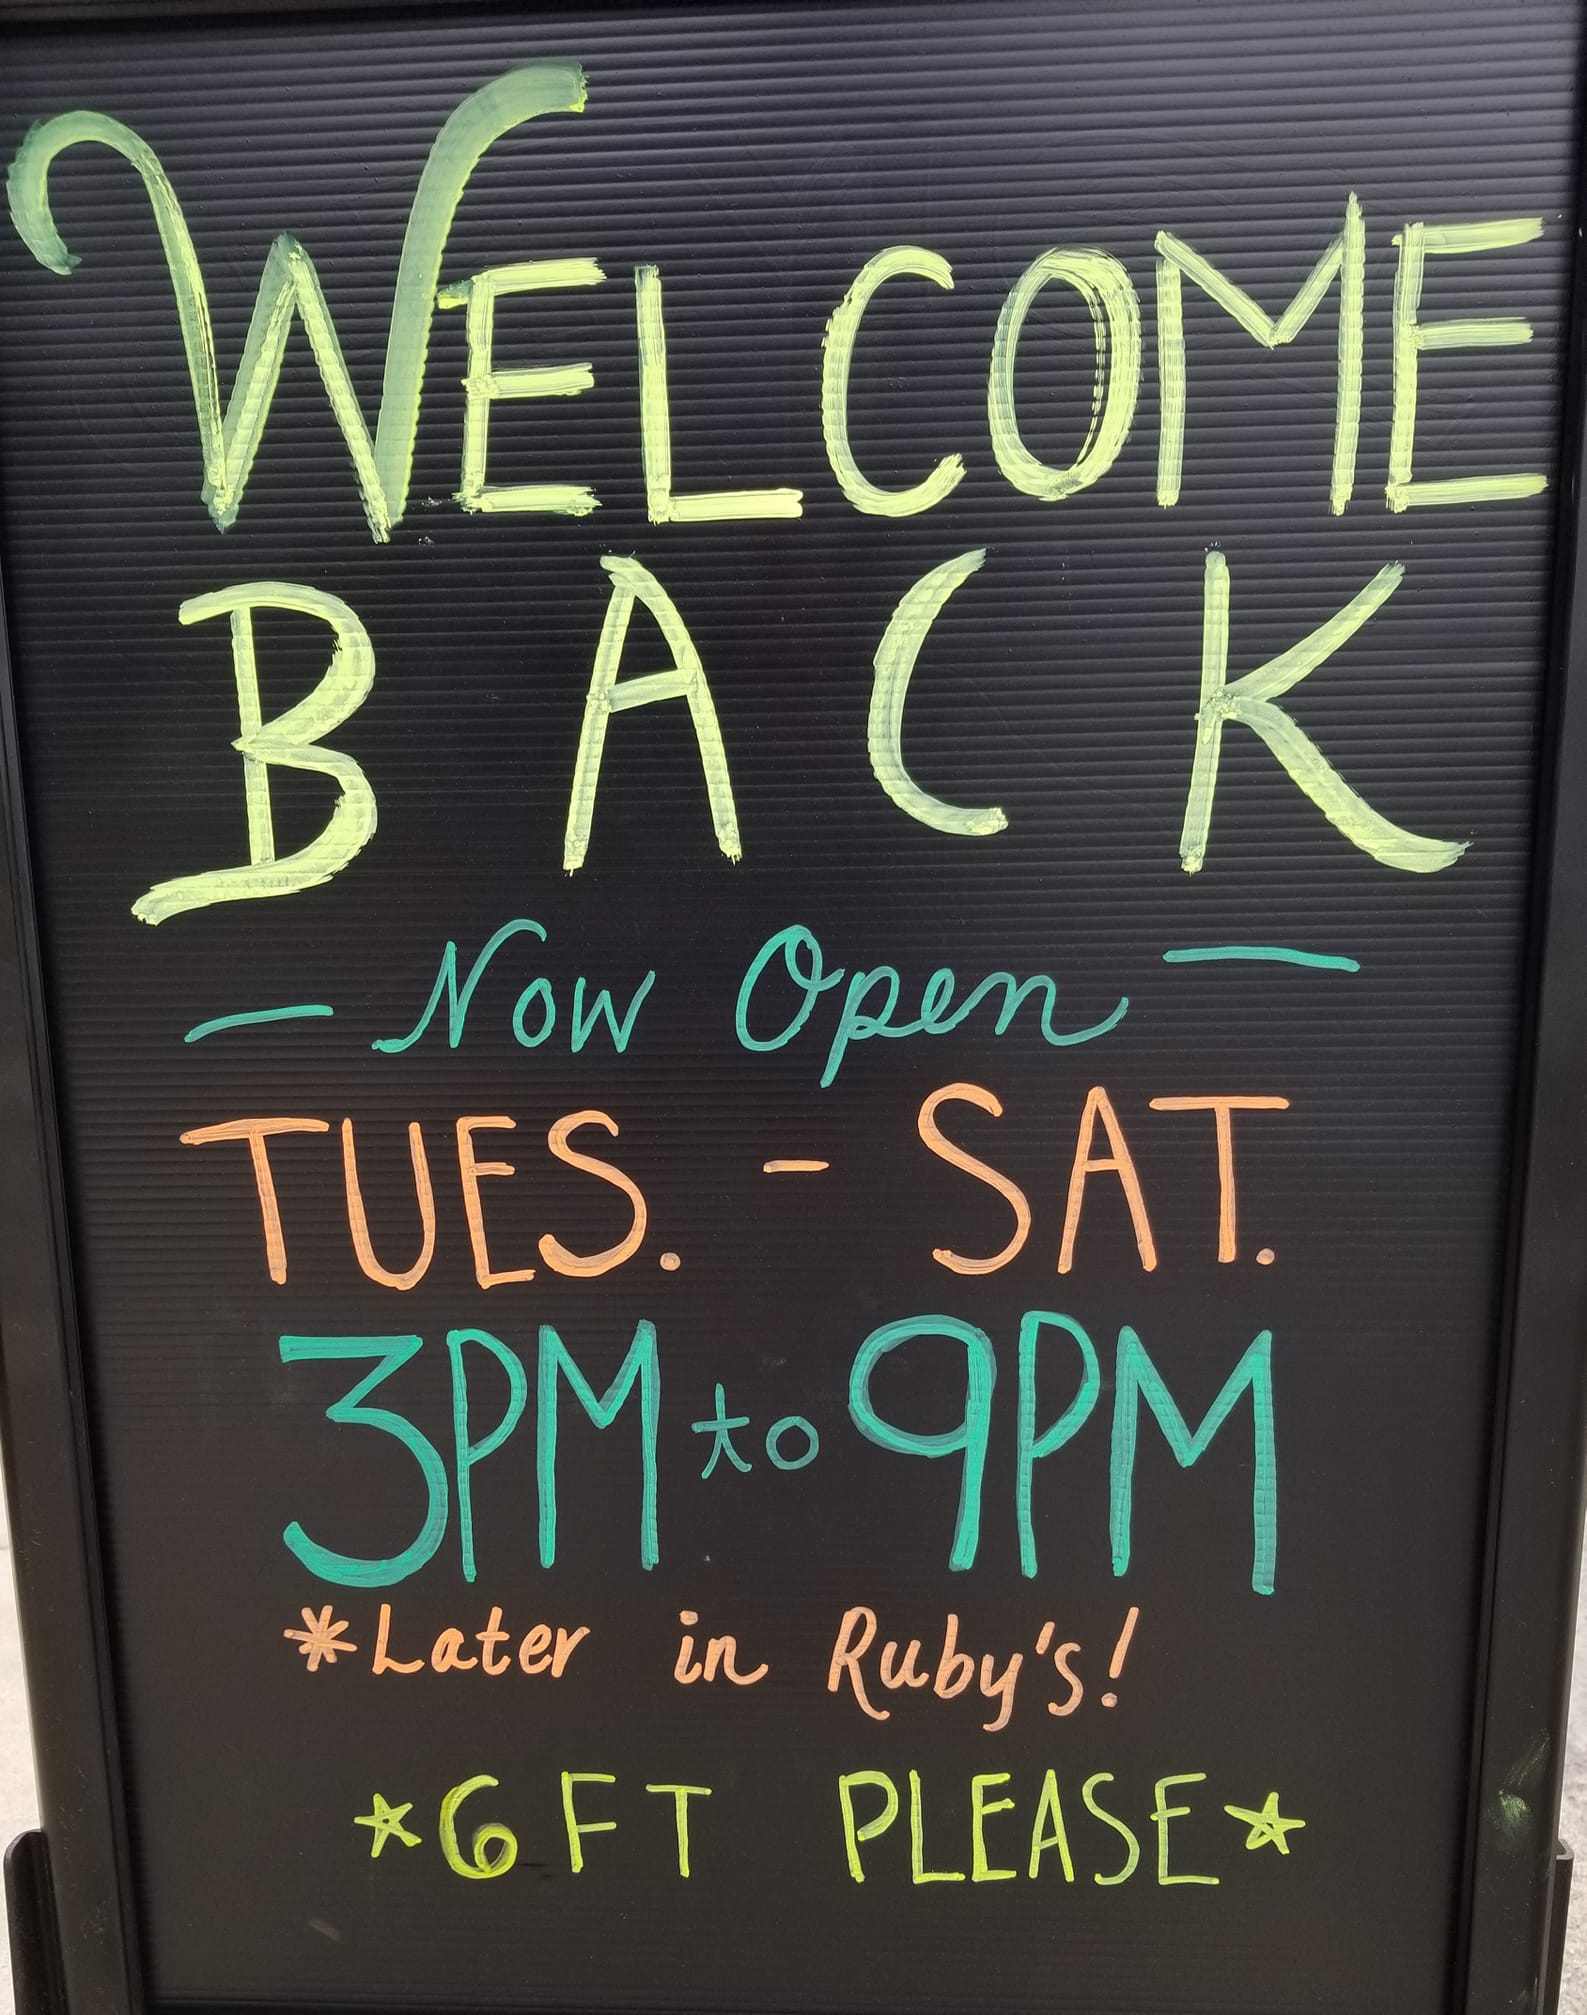 WELCOME
BACK
— Now Open —
TUES. - SAT.
3PM to 9PM
*Later in Ruby's!
☆6FT PLEASE☆